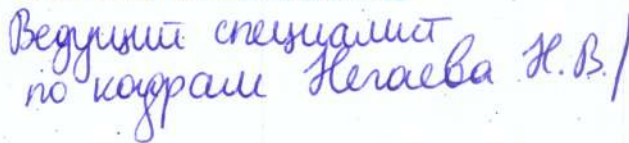 Ведущий специалист
по кадрам Негаева Н.В./